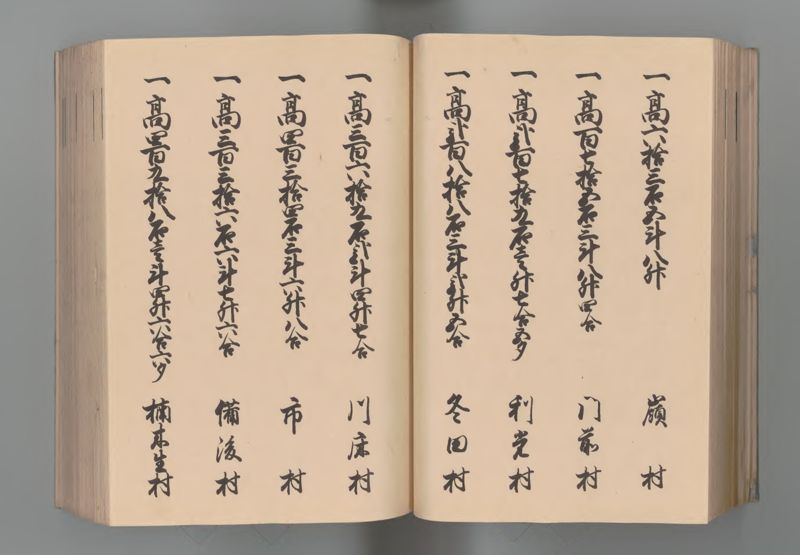 一高六拾三石五斗八升 嶺村
一高百七拾五石三斗八升四合 門前村
一高弐百七拾五石壱升七合五夕 利光村
一高弐百八拾八石三斗弐升五合 冬田村
一高三百六拾五石弐斗四升七合 川床村
一高四百三拾四石三斗六升八合 市村
一高三百三拾六石六斗七升六合 備後村
一高四百五拾八石壱斗四升六合六夕 楠木生村